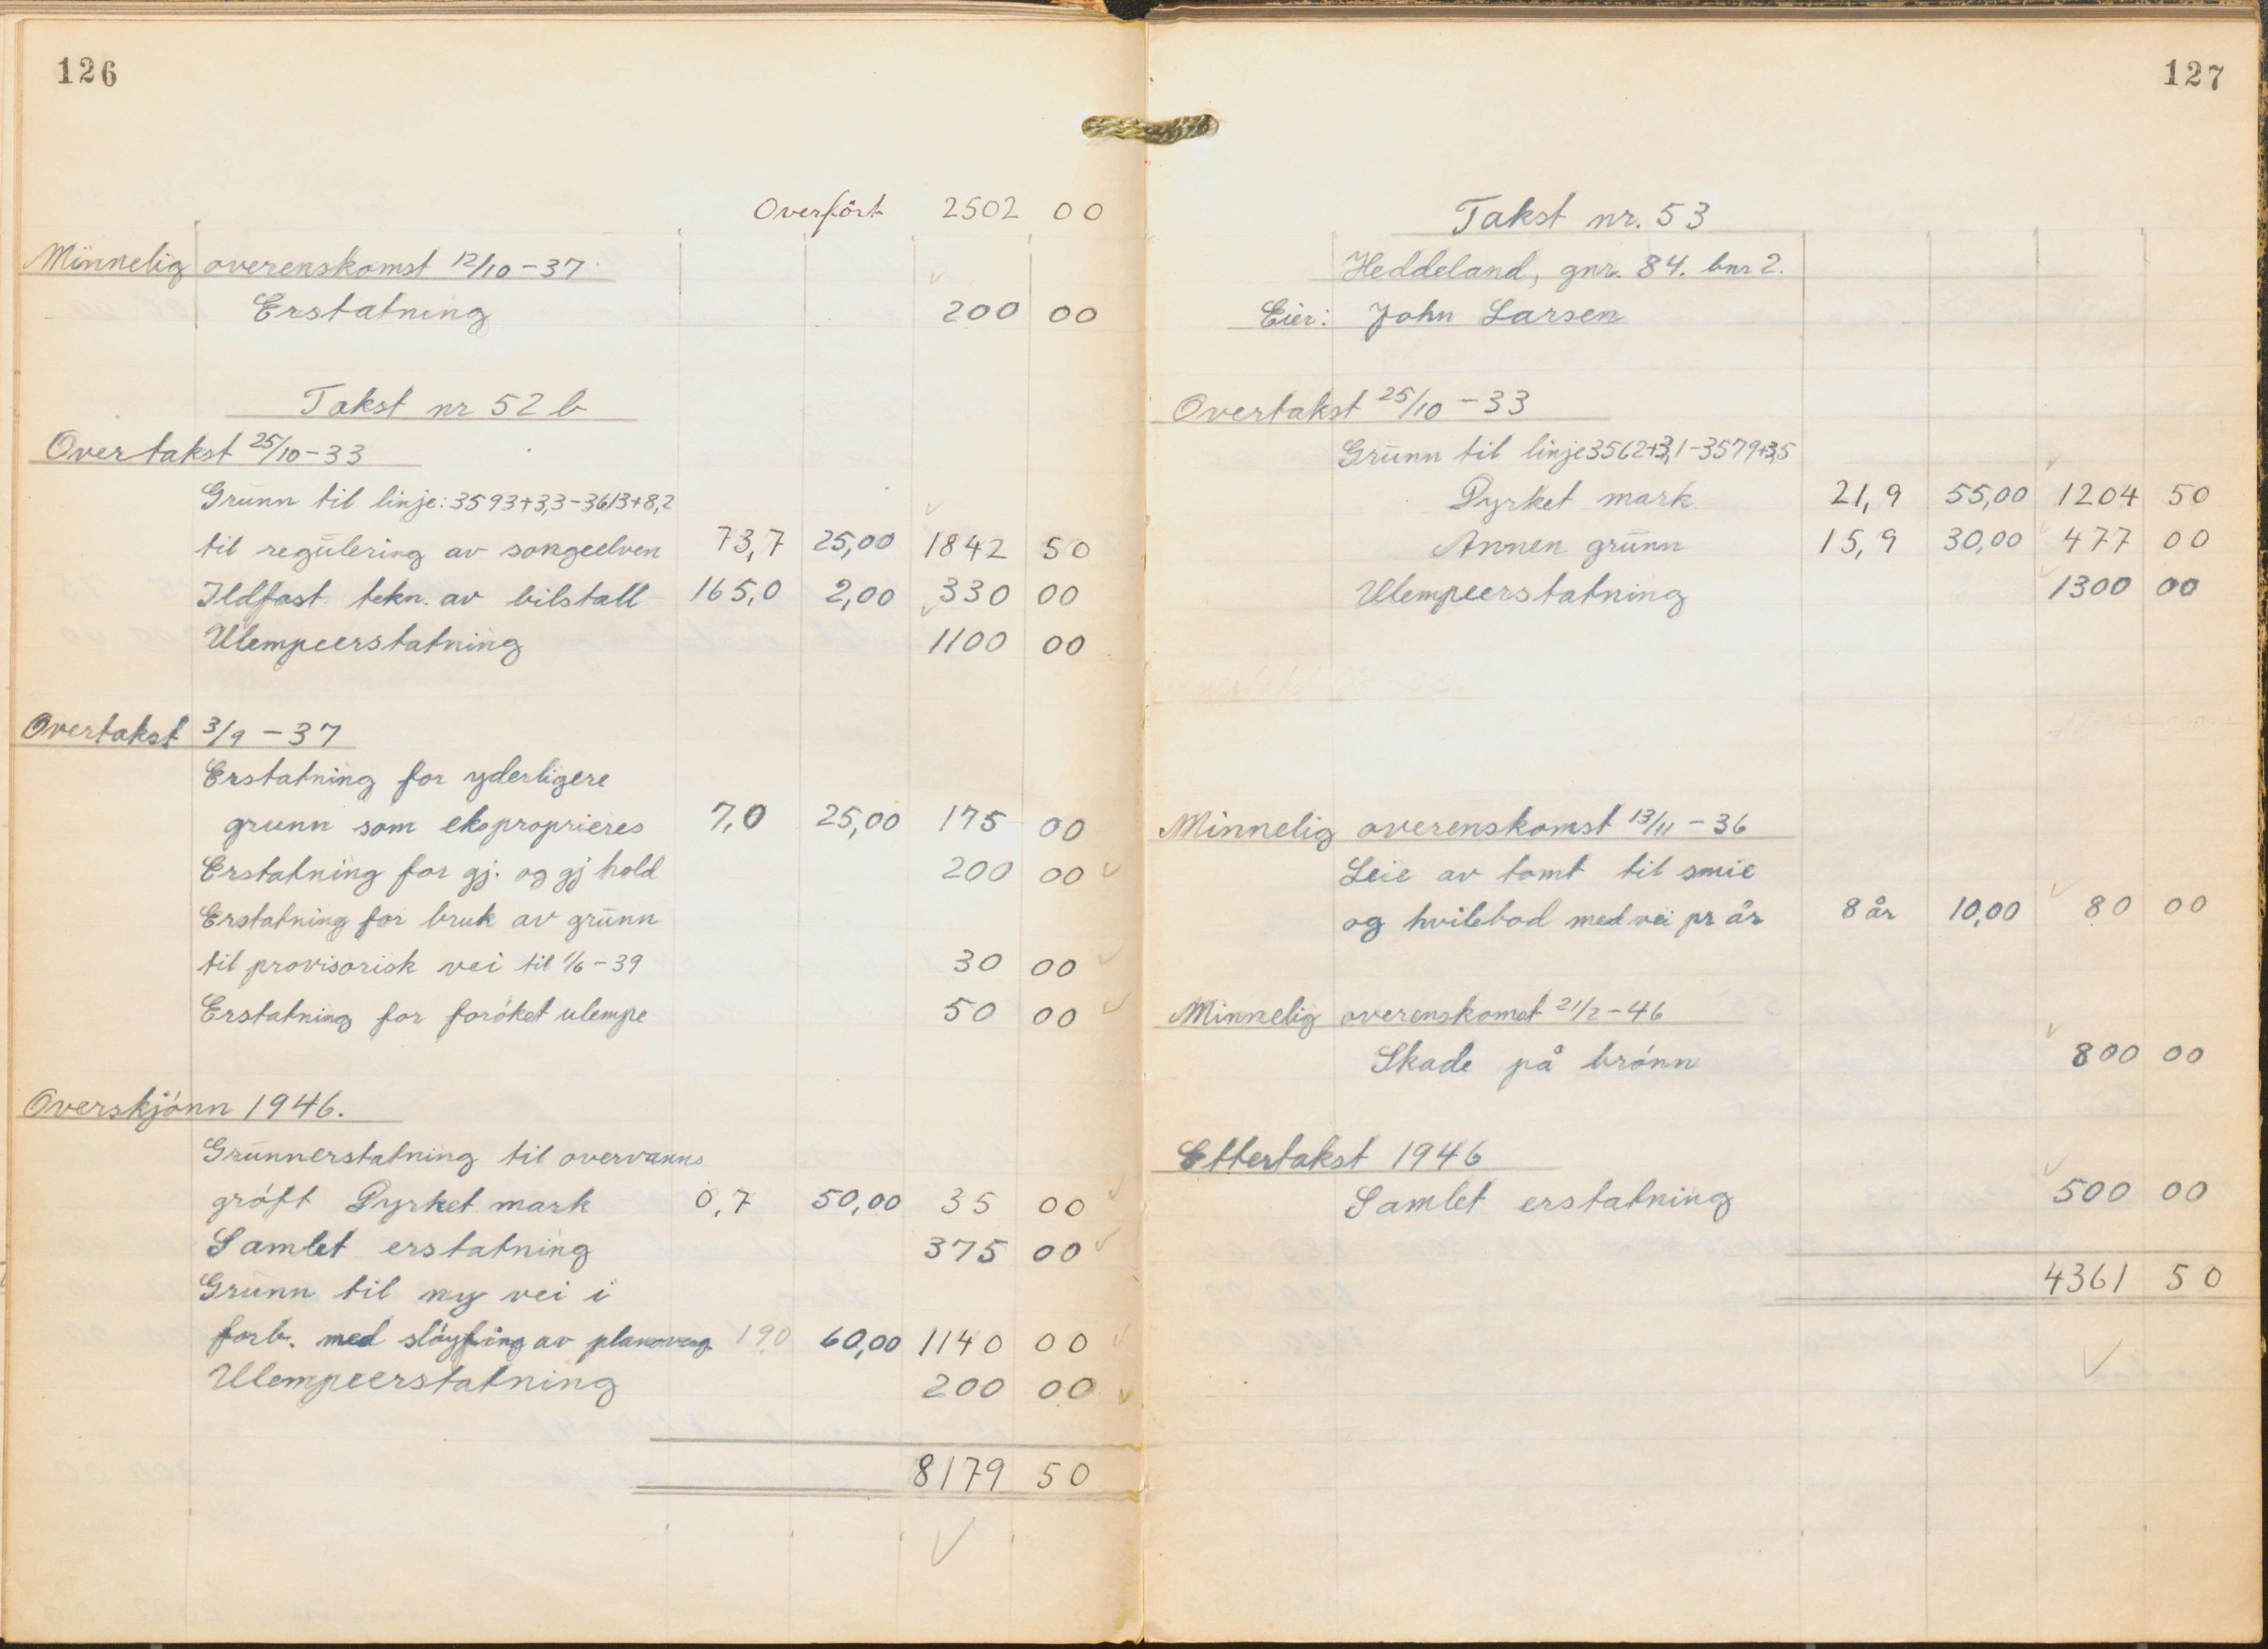 126
Overført 2502 00
Minnelig overenskomst 12/10-37
Erstatning 200 00
Takst nr 52 b
Overtakst 25/10-33
Grunn til linje: 3593+3,3-3613+8,2
til regulering av songeelven 73,7 25,00 1842 50
Ildfast tekn. av bilstall 165,0 2,00 330 00
Ulempeerstatning 1100 00
Overtakst 3/9-37
Erstatning for yderligere
grunn som ekoproprieres 7,0 25,00 175 00
Erstatning for gj. og gj hold 200 00
Erstatning for bruk av grunn
til provisorisk vei til 1/6-39 30 00
Erstatning for forøket ulempe 50 00
Overskjønn 1946.
Grunnerstatning til overvanns
grøft Dyrket mark 0,7 50,00 35 00
Samlet erstatning 375 00
Grunn til ny vei i
forb. med sløyfing av planoverg. 19,0 60,00 1140 00
Ulempeerstatning 200 00
8179 50
127
Takst nr. 53
Heddeland, gnr. 84. bnr 2.
Eier: John Larsen
Overtakst 25/10-33
Grunn til linje 3562+3,1-3579+3,5
Dyrket mark 21,9 55,00 1204 50
Annen grunn 15,9 30,00 477 00
Ulempeerstatning 1300 00
Minnelig overenskomst 13/11-36
Leie av tomt til smie
og hvilebod med vei pr år 8 år 10,00 80 00
Minnelig overenskomst 21/2-46
Skade på brønn 800 00
Ettertakst 1946
Samlet erstatning 500 00
4361 50